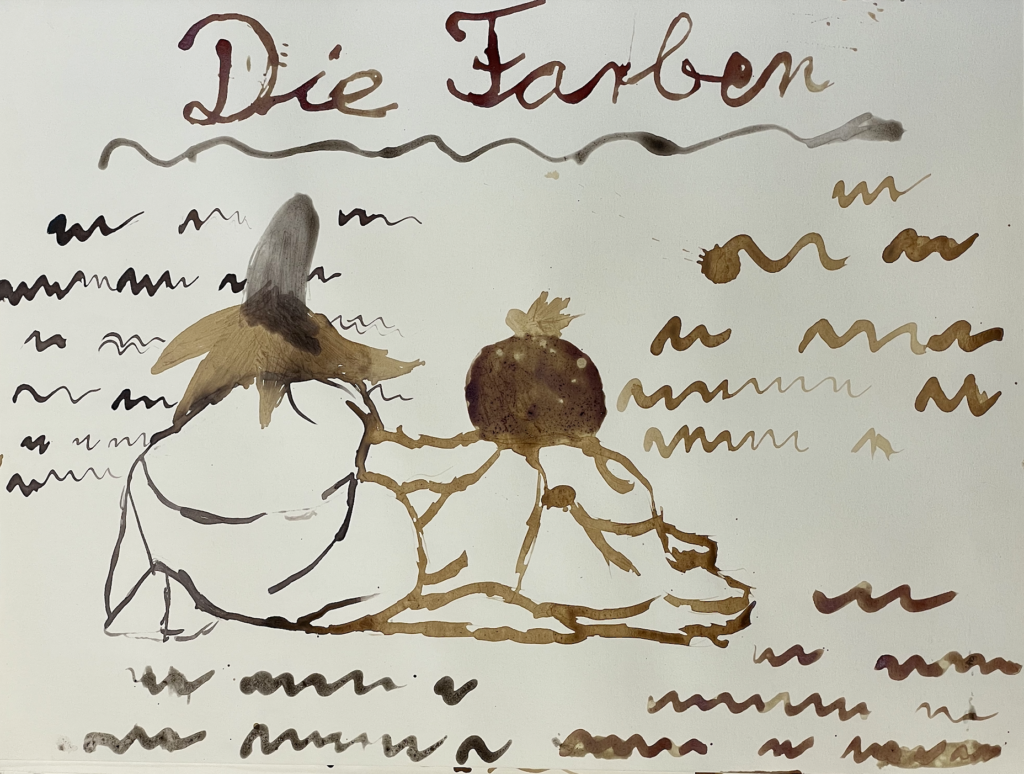 Die Farben